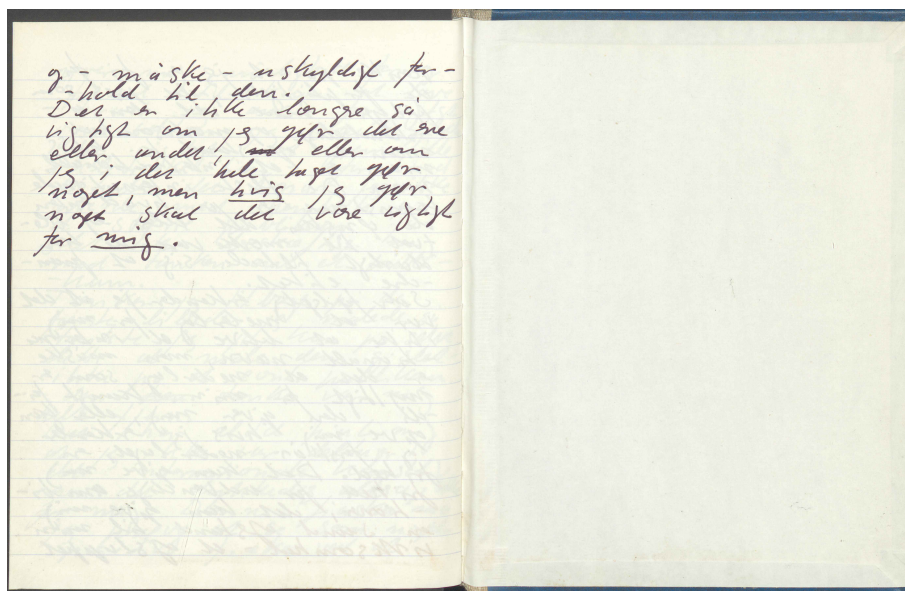 og - måske - uskyldigt for-
-hold til den.
Det er ikke længre så
vigtigt om jeg gør det ene
eller andet, eller om
jeg i det hele taget gør
noget, men hvis jeg gør
noget skal det være vigtigt
for mig.